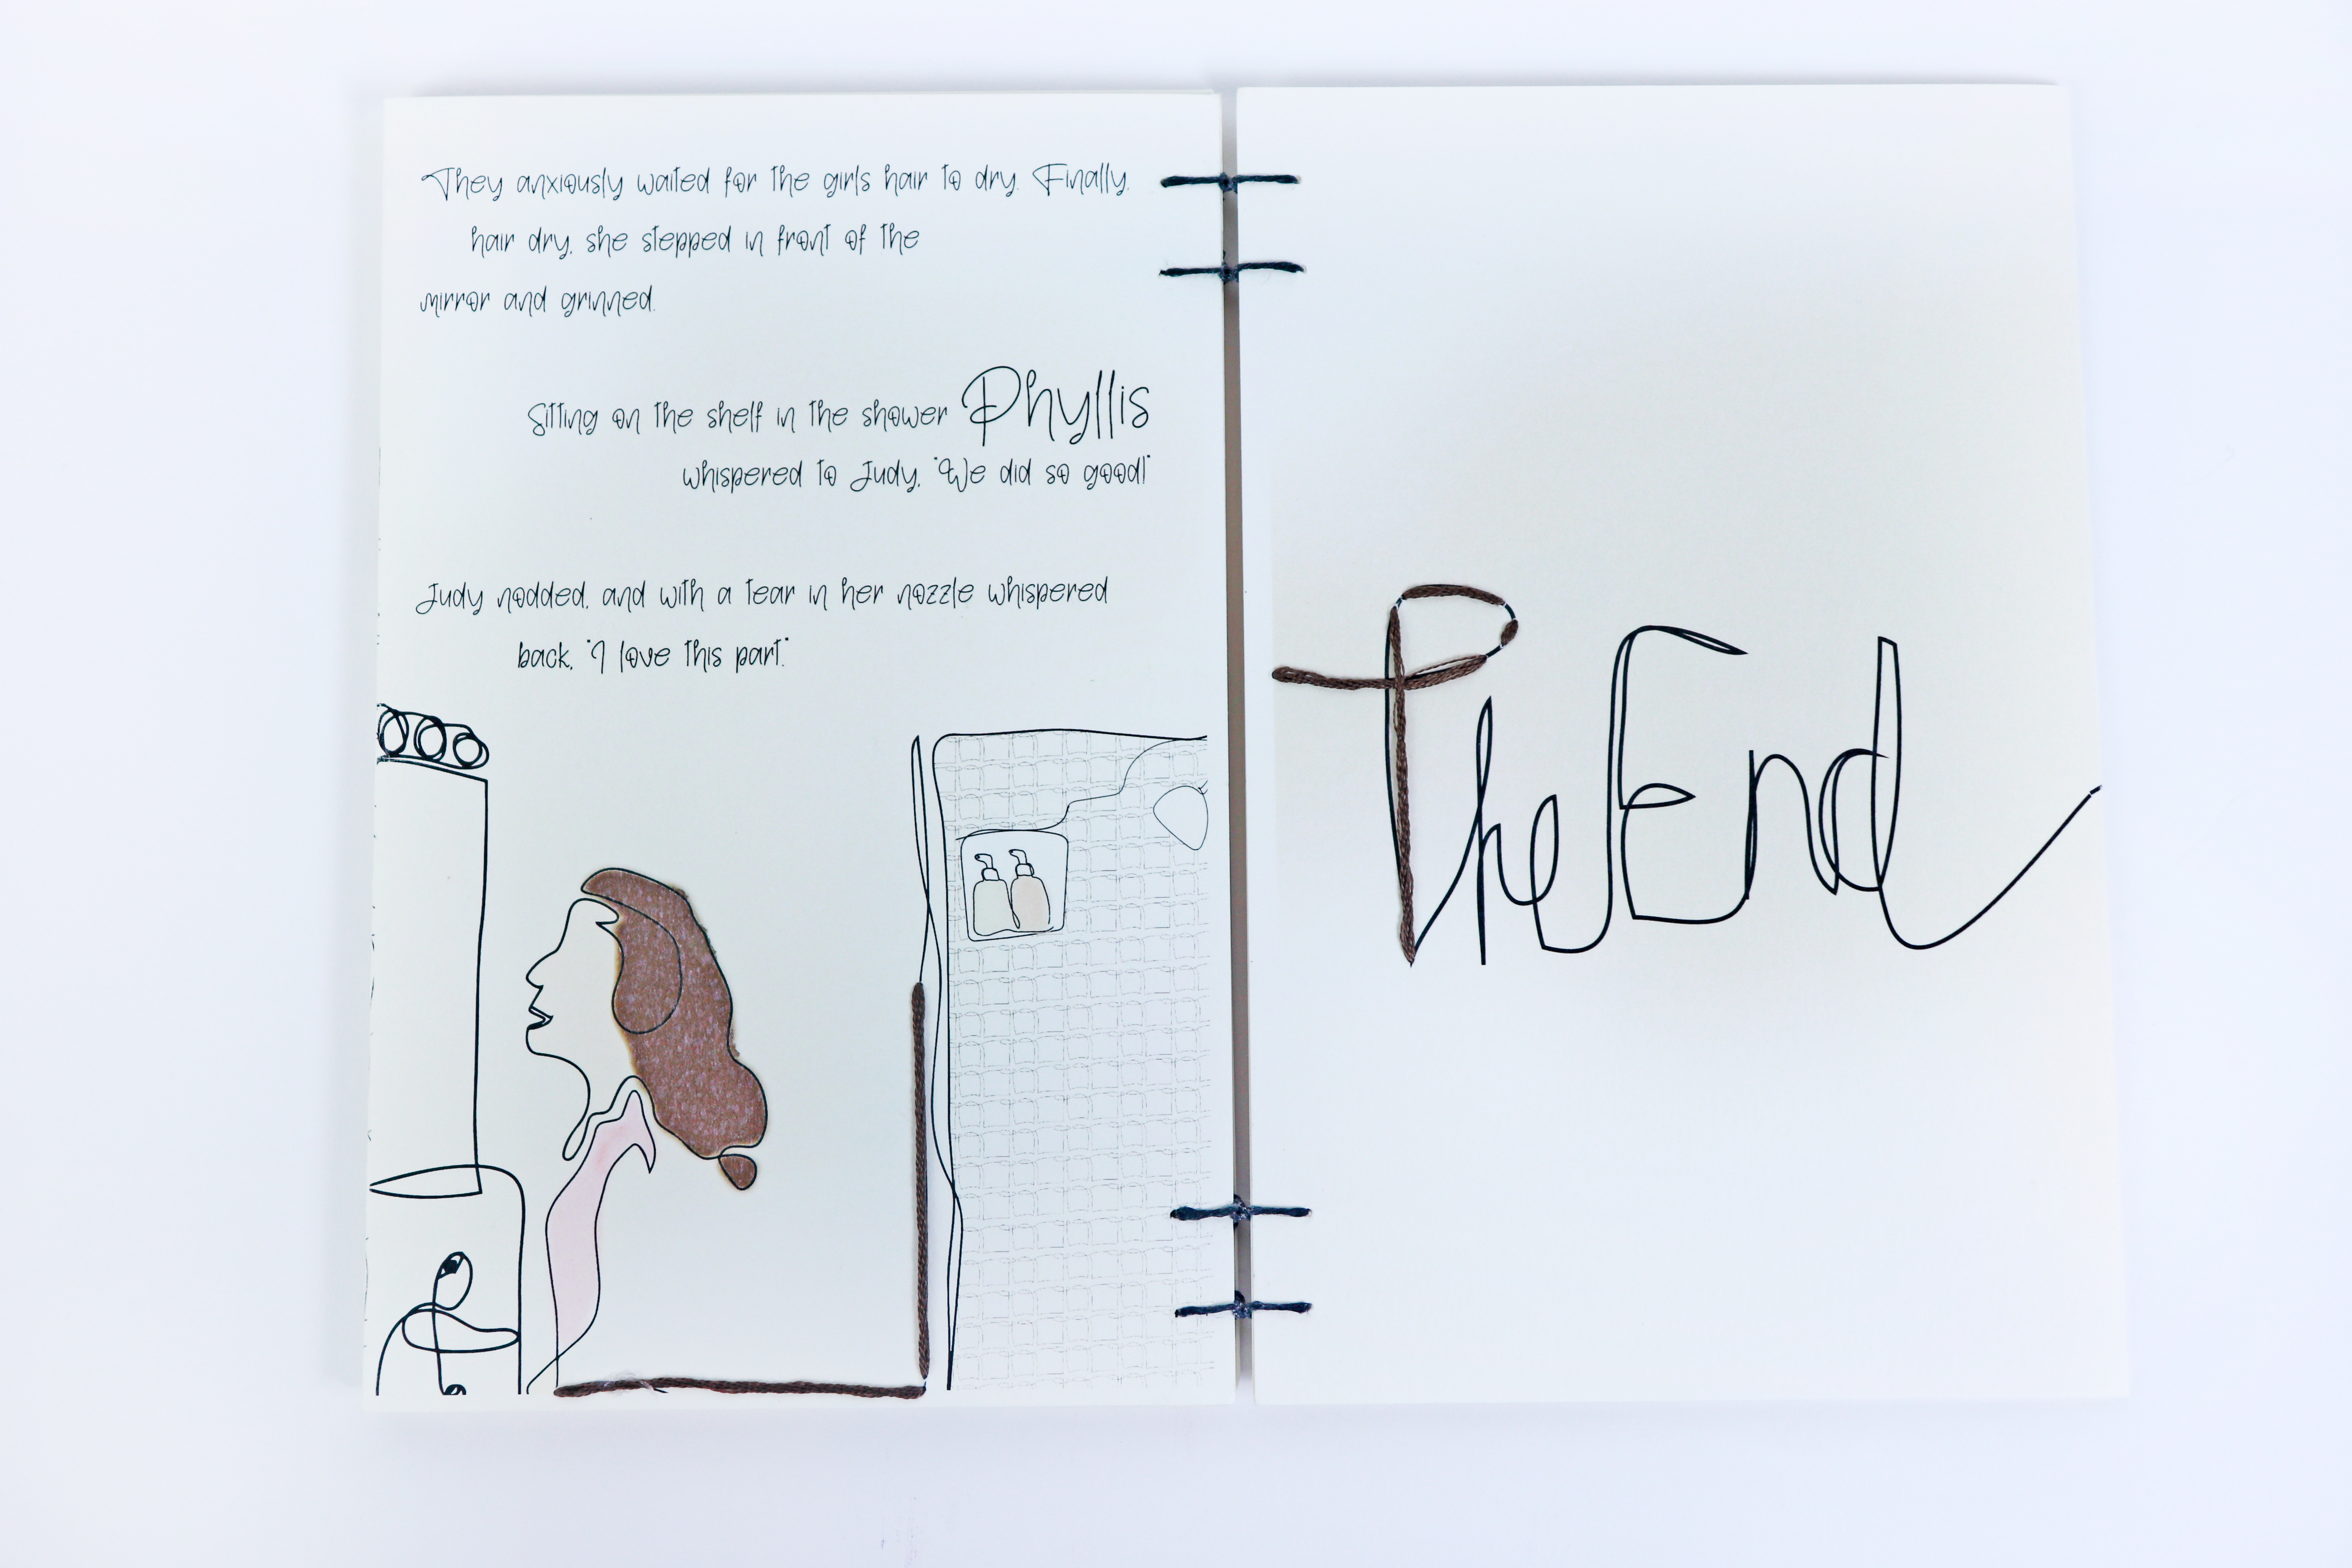 They anxiously waited for the girls hair to dry. Finally,
hair dry, she stepped in front of the
mirror and grinned.
Sitting on the shelf in the shower Phyllis
whispered to Judy, "We did so good!"
Judy nodded, and with a tear in her nozzle whispered
back, "I love this part."
The End